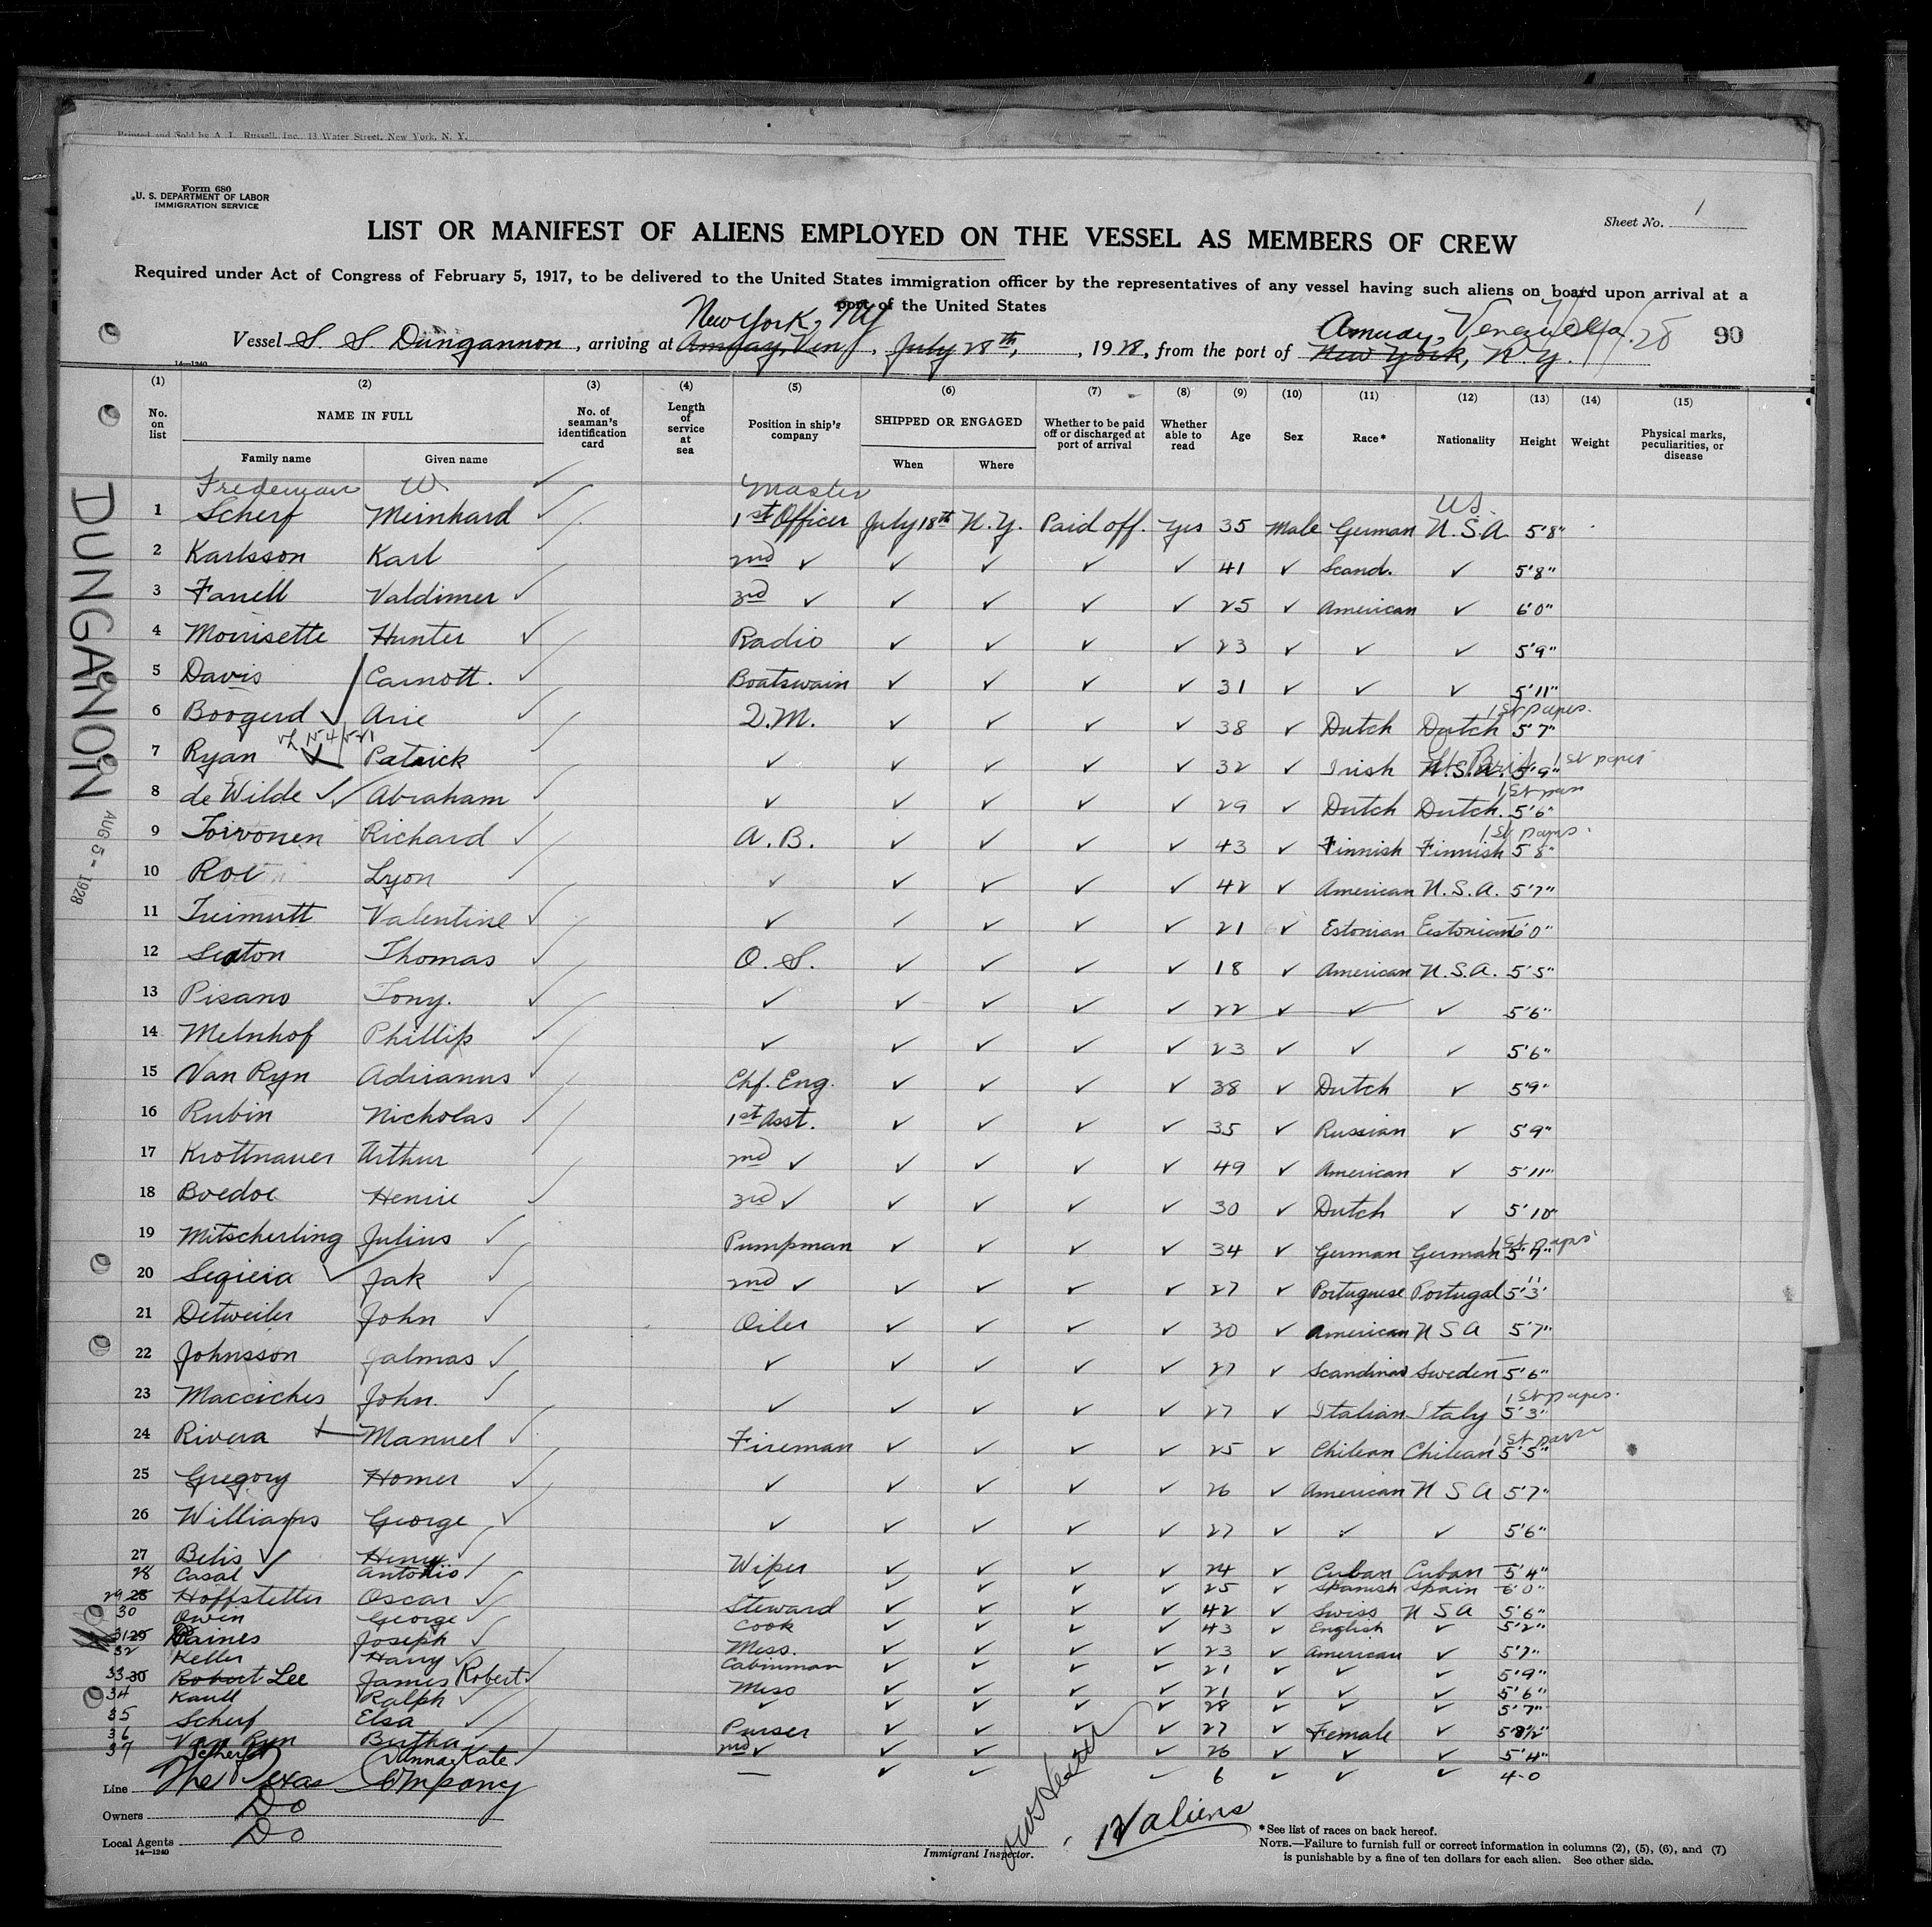 Printed and Sold by A. L. Russell, Inc., 13 Water Street, New York, N. Y.
Form 680
U. S. DEPARTMENT OF LABOR
IMMIGRATION SERVICE
Sheet No. 1
LIST OR MANIFEST OF ALIENS EMPLOYED ON THE VESSEL AS MEMBERS OF CREW
Required under Act of Congress of February 5, 1917, to be delivered to the United States immigration officer by the representatives of any vessel having such aliens on board upon arrival at a
port of the United States
New York, NY Amuay, Venezuela
Vessel S. S. Dungannon, arriving at Amuay, Ven, July 28th, 1928, from the port of New York, N.Y. 90
14—1240
(1) (2) (3) (4) (5) (6) (7) (8) (9) (10) (11) (12) (13) (14) (15)
No. on list NAME IN FULL No. of seaman's identification card Length of service at sea Position in ship's company SHIPPED OR ENGAGED Whether to be paid off or discharged at port of arrival Whether able to read Age Sex Race* Nationality Height Weight Physical marks, peculiarities, or disease
Family name Given name When Where
DUNGANNON
AUG 5 - 1928
Fredeman W. ✓ Master US.
1 Scherf Meinhard ✓ 1st Officer July 18th N.Y. Paid off. Yes 35 Male German U.S.A. 5'8"
2 Karlsson Karl 2nd ✓ ✓ ✓ ✓ ✓ 41 ✓ Scand. ✓ 5'8"
3 Farrell Valdimer ✓ 3rd ✓ ✓ ✓ ✓ ✓ 25 ✓ American ✓ 6'0"
4 Morrisette Hunter ✓ Radio ✓ ✓ ✓ ✓ 23 ✓ ✓ ✓ 5'9"
5 Davis Carnott. ✓ Boatswain ✓ ✓ ✓ ✓ 31 ✓ ✓ ✓ 5'11"
6 Boogerd ✓ Arie ✓ Q.M. ✓ ✓ ✓ ✓ 38 ✓ Dutch Dutch 5'7" 1st papers.
7 Ryan ✓ Patrick ✓ ✓ ✓ ✓ ✓ 32 ✓ Irish U.S.A. Brit 5'9" 1st papers
8 de Wilde ✓ Abraham ✓ ✓ ✓ ✓ ✓ 29 ✓ Dutch Dutch. 5'6"
9 Toivonen Richard ✓ A.B. ✓ ✓ ✓ ✓ 43 ✓ Finnish Finnish 5'8" 1st papers.
10 Roe Lyon ✓ ✓ ✓ ✓ ✓ 42 ✓ American U.S.A. 5'7"
11 Treimutt Valentine ✓ ✓ ✓ ✓ ✓ ✓ 21 ✓ Estonian Eestonian 6'0"
12 Seaton Thomas ✓ O.S. ✓ ✓ ✓ ✓ 18 ✓ American U.S.A. 5'5"
13 Pisano Tony. ✓ ✓ ✓ ✓ ✓ ✓ 22 ✓ ✓ ✓ 5'6"
14 Melnhof Phillip ✓ ✓ ✓ ✓ ✓ ✓ 23 ✓ ✓ ✓ 5'6"
15 Van Ryn Adrianus ✓ Chf. Eng. ✓ ✓ ✓ ✓ 38 ✓ Dutch ✓ 5'9"
16 Rubin Nicholas ✓ 1st Asst. ✓ ✓ ✓ ✓ 35 ✓ Russian ✓ 5'9"
17 Krottnauer Arthur 2nd ✓ ✓ ✓ ✓ ✓ 49 ✓ American ✓ 5'11"
18 Boedoe Henrie ✓ 3rd ✓ ✓ ✓ ✓ ✓ 30 ✓ Dutch ✓ 5'10"
19 Mitscherling Julius ✓ Pumpman ✓ ✓ ✓ ✓ 34 ✓ German German 5'7" 1st papers
20 Sequeia ✓ Jak ✓ 2nd ✓ ✓ ✓ ✓ ✓ 27 ✓ Portuguese Portugal 5'3"
21 Detweiler John ✓ Oiler ✓ ✓ ✓ ✓ 30 ✓ American U S A 5'7"
22 Johnsson Jalmas ✓ ✓ ✓ ✓ ✓ ✓ 27 ✓ Scandinav Sweden 5'6"
23 Macciches John. ✓ ✓ ✓ ✓ ✓ ✓ 27 ✓ Italian Italy 5'3" 1st papers.
24 Rivera Manuel ✓ Fireman ✓ ✓ ✓ ✓ 25 ✓ Chilean Chilean 5'5"
25 Gregory Homer ✓ ✓ ✓ ✓ ✓ ✓ 26 ✓ American U S A 5'7"
26 Williams George ✓ ✓ ✓ ✓ ✓ ✓ 27 ✓ ✓ ✓ 5'6"
27 Belis ✓ Henry ✓ Wiper ✓ ✓ ✓ ✓ 24 ✓ Cuban Cuban 5'4"
28 Casal ✓ Antonio ✓ ✓ ✓ ✓ ✓ ✓ 25 ✓ Spanish Spain 6'0"
29 28 Hoffstetter Oscar ✓ Steward ✓ ✓ ✓ ✓ 42 ✓ Swiss U S A 5'6"
30 Owen George ✓ Cook ✓ ✓ ✓ ✓ 43 ✓ English ✓ 5'2"
31 29 Raines Joseph ✓ Mess. ✓ ✓ ✓ ✓ 23 ✓ American ✓ 5'7"
32 Keller Harry ✓ Cabinman ✓ ✓ ✓ ✓ 21 ✓ ✓ ✓ 5'9"
33 30 Robert Lee James Robert ✓ Mess ✓ ✓ ✓ ✓ 21 ✓ ✓ ✓ 5'6"
34 Ralph ✓ ✓ ✓ ✓ ✓ ✓ 28 ✓ ✓ ✓ 5'7"
35 Scherf Elsa ✓ Purser ✓ ✓ ✓ ✓ 27 ✓ Female ✓ 5'8½"
36 Van Ryn Bertha ✓ 2nd ✓ ✓ ✓ ✓ ✓ 26 ✓ ✓ ✓ 5'4"
37 Scherf Anna Kate ✓ — ✓ ✓ ✓ 6 ✓ ✓ ✓ 4-0
Line The Texas Company
Owners Do
Local Agents Do
14—1240
Immigrant Inspector.
12 aliens
*See list of races on back hereof.
NOTE.—Failure to furnish full or correct information in columns (2), (5), (6), and (7)
is punishable by a fine of ten dollars for each alien. See other side.